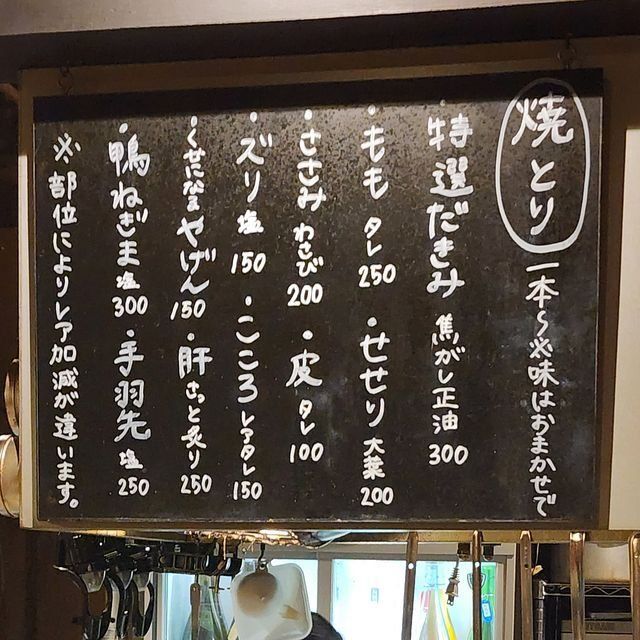 焼とり 一本〜※味はおまかせで
・特選だきみ 焦がし正油 300
・もも タレ 250 ・せせり 大葉 200
・ささみ わさび 200 ・皮 タレ 100
・ズリ 塩 150 ・こころ レアタレ 150
・くせになる やげん 150 ・肝 さっと炙り 250
・鴨ねぎま 塩 300 ・手羽先 塩 250
※部位によりレア加減が違います。